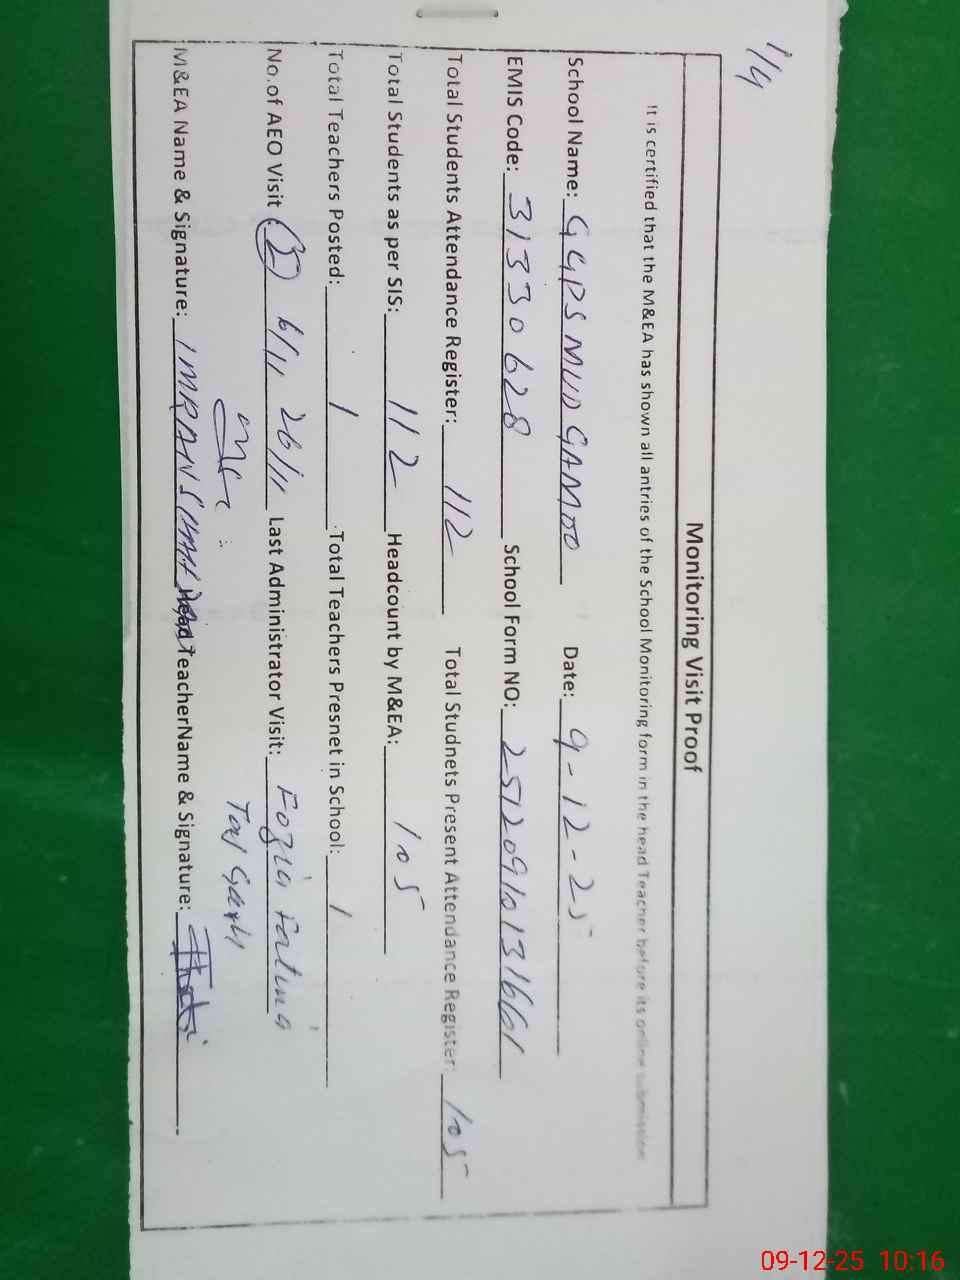 1/4
Monitoring Visit Proof
It is certified that the M&EA has shown all antries of the School Monitoring form in the head Teacher before its online submission
School Name: GGPS MUD GAMOO Date: 9-12-25
EMIS Code: 31330628 School Form NO: 25120910131661
Total Students Attendance Register: 112 Total Studnets Present Attendance Register: 105
Total Students as per SIS: 112 Headcount by M&EA: 105
Total Teachers Posted: 1 Total Teachers Presnet in School: 1
No.of AEO Visit: 6/11 26/11 Last Administrator Visit: Fozia Fatima
M&EA Name & Signature: IMRAN Head TeacherName & Signature:
09-12-25 10:16